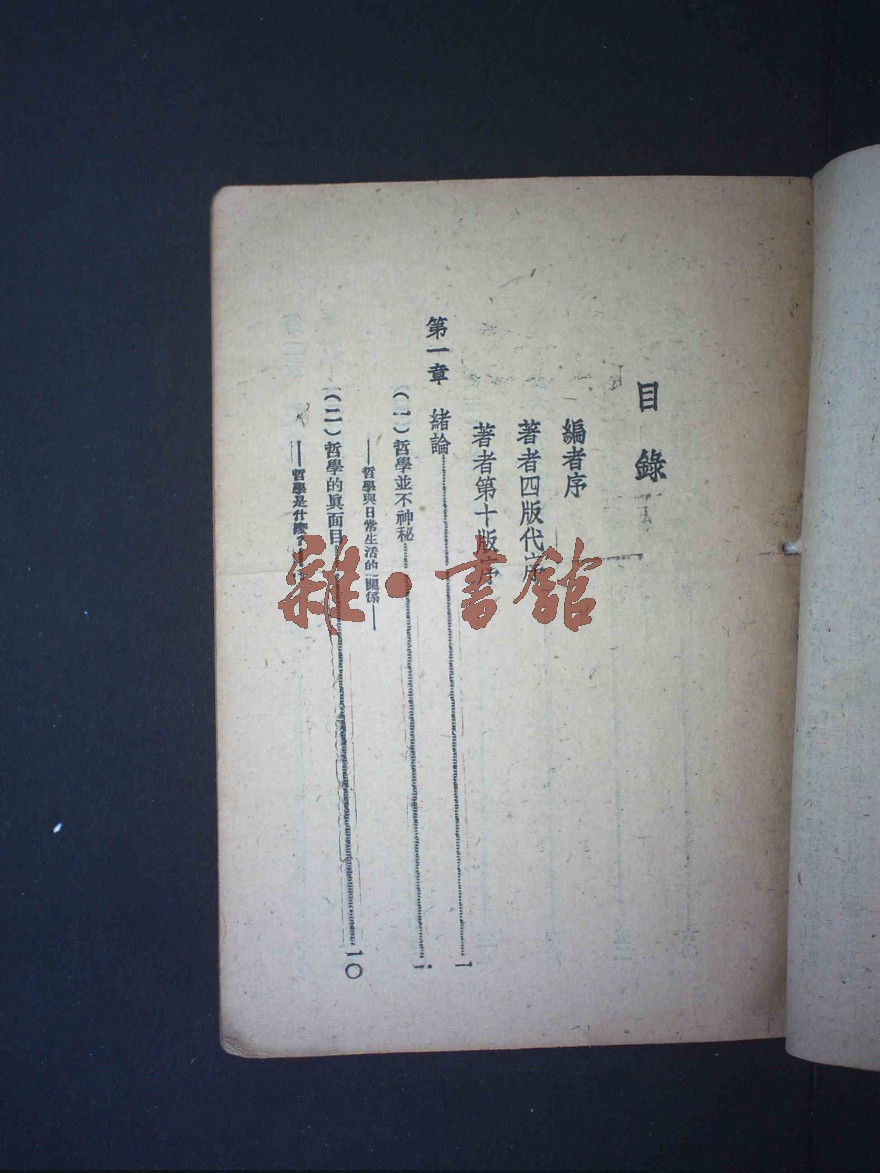 目錄
編者序
著者四版代序
著者第十版序
第一章 緒論……一
（一）哲學並不神秘……一
——哲學與日常生活的關係——
（二）哲學的眞面目……一〇
——哲學是什麼？——
雜·書舘